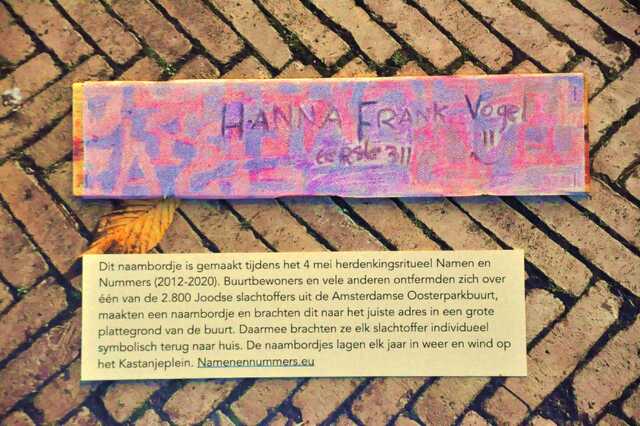 HANNA FRANK Vogel
eerste 311
Dit naambordje is gemaakt tijdens het 4 mei herdenkingsritueel Namen en
Nummers (2012-2020). Buurtbewoners en vele anderen ontfermden zich over
één van de 2.800 Joodse slachtoffers uit de Amsterdamse Oosterparkbuurt,
maakten een naambordje en brachten dit naar het juiste adres in een grote
plattegrond van de buurt. Daarmee brachten ze elk slachtoffer individueel
symbolisch terug naar huis. De naambordjes lagen elk jaar in weer en wind op
het Kastanjeplein. Namenennummers.eu